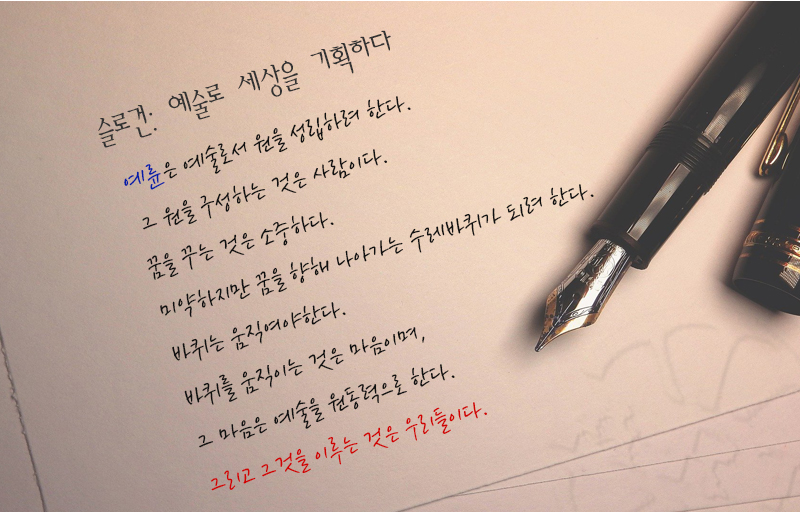 슬로건: 예술로 세상을 기획하다
예륜은 예술로서 원을 성립하려 한다.
그 원을 구성하는 것은 사람이다.
꿈을 꾸는 것은 소중하다.
미약하지만 꿈을 향해 나아가는 수레바퀴가 되려 한다.
바퀴는 움직여야한다.
바퀴를 움직이는 것은 마음이며,
그 마음은 예술을 원동력으로 한다.
그리고 그것을 이루는 것은 우리들이다.